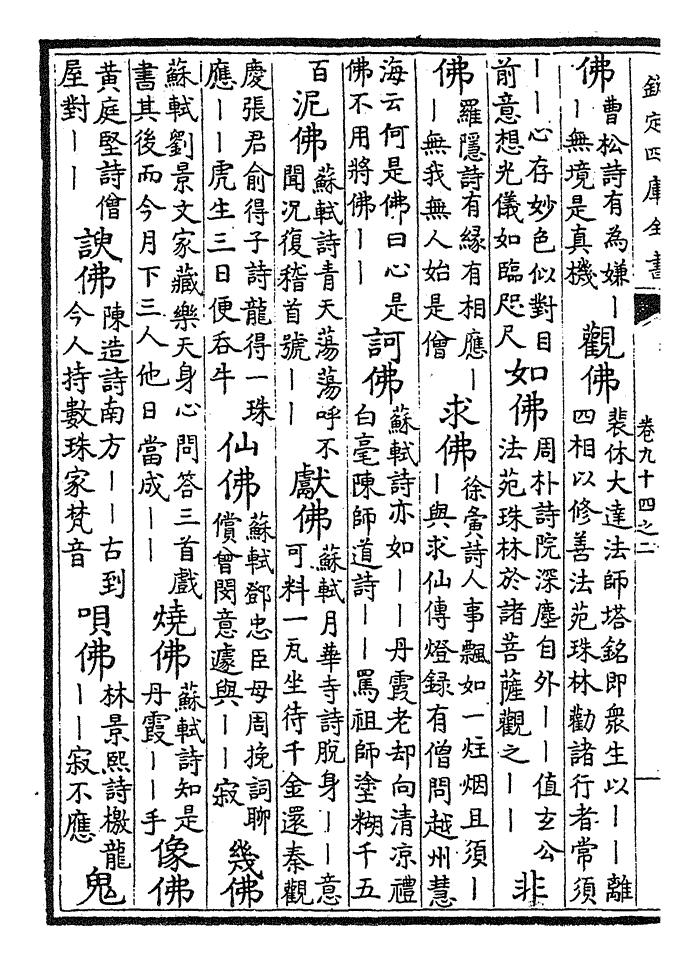 欽定四庫全書
卷九十四之二
佛
曹松詩有為嫌丨
丨無境是真機
觀佛
裴休大達法師塔銘即衆生以丨丨離
四相以修善法苑珠林勸諸行者常須
丨丨心存妙色似對目
前意想光儀如臨咫尺
如佛
周朴詩院深塵自外丨丨值玄公
法苑珠林於諸菩薩觀之丨丨
非
佛
羅隱詩有緣有相應丨
丨無我無人始是僧
求佛
徐夤詩人事飄如一炷烟且須丨
丨與求仙傳燈録有僧問越州慧
海云何是佛曰心是
佛不用將佛丨丨
訶佛
蘇軾詩亦如丨丨丹霞老却向清凉禮
白毫陳師道詩丨丨罵祖師塗糊千五
百
泥佛
蘇軾詩青天蕩蕩呼不
聞況復稽首號丨丨
獻佛
蘇軾月華寺詩脱身丨丨意
可料一瓦坐待千金還秦觀
慶張君俞得子詩龍得一珠
應丨丨虎生三日便吞牛
仙佛
蘇軾鄧忠臣母周挽詞聊
償曾閔意遽與丨丨寂
幾佛
蘇軾劉景文家藏樂天身心問答三首戲
書其後而今月下三人他日當成丨丨
燒佛
蘇軾詩知是
丹霞丨丨手
像佛
黄庭堅詩僧
屋對丨丨
諛佛
陳造詩南方丨丨古到
今人持數珠家梵音
唄佛
林景熙詩檄龍
丨丨寂不應
鬼